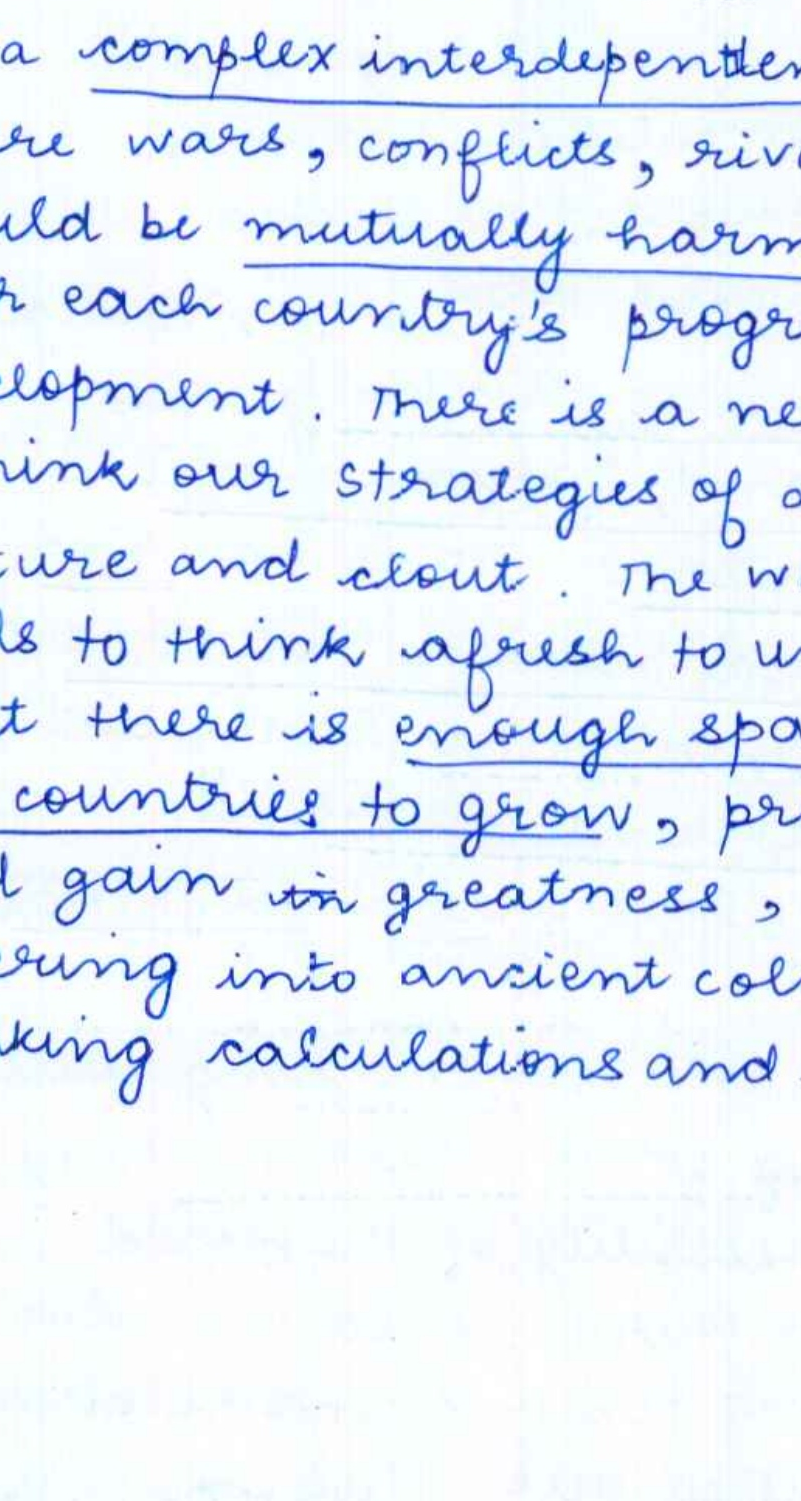 a complex interdependen
re wars, conflicts, riv
uld be mutually harm
r each country's progr
elopment. There is a ne
hink our strategies of a
ture and clout. The w
ls to think afresh to u
t there is enough spa
countries to grow, pr
d gain in greatness,
ering into ancient col
king calculations and